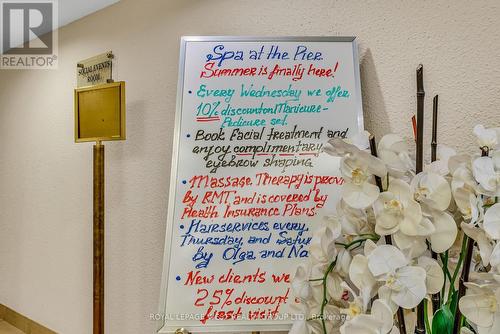 REALTOR®
SOCIAL/EVENTS
ROOM
Spa at the Pier
Summer is finally here!
• Every Wednesday we offer
10% discount on Manicure-
Pedicure set.
• Book Facial treatment and
anyoy complimentary
eyebrow shaping
• Massage Therapy is provi
by RMT and is covered by
Health Insurance Plans.
• Hair services every
Thursday, and Satur
by Olga and Na
• New clients We
25% discount
first visit
ROYAL LEPAGE LTD., Brokerage